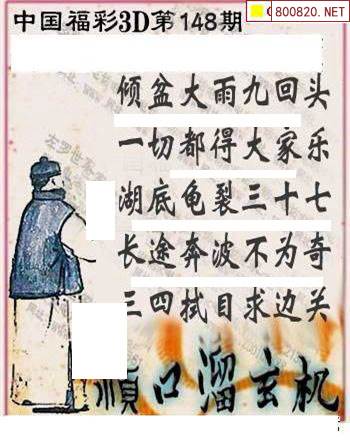 中国福彩3D第148期
800820.NET
倾盆大雨九回头
一切都得大家乐
湖底龟裂三十七
长途奔波不为奇
三四拭目求边关
顺口溜玄机